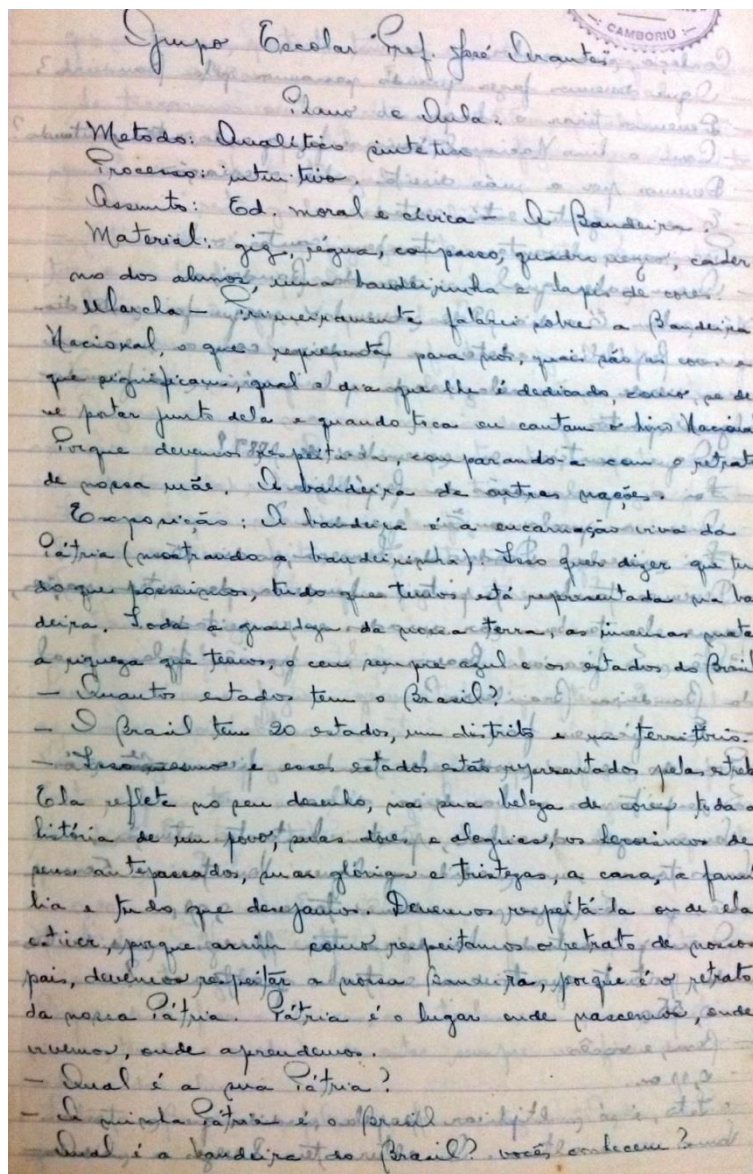 CAMBORIÚ
Grupo Escolar "Prof. José Arantes"
Plano de Aula:
Metodo: Analítico sintetico
Processo: intuitivo.
Assunto: Ed. moral e cívica - A Bandeira.
Material: giz, régua, compasso, quadro negro, cader
no dos alunos, uma bandeirinha e lapis de cores.
Marcha - Primeiramente falarei sobre a Bandeira
Nacional, o que representa para nós, quais são as cores e
que significam, qual o dia que lhe é dedicado, como se de
ve portar junto dela e quando toca ou cantam o hino Naciona
Porque devemos respeitá-la, comparando-a com o retrat
de nossa mãe. A bandeira de outras nações.
Exposição: A bandeira é a encarnação viva da
Pátria (mostrando a bandeirinha). Isso quer dizer que tu
do que possuimos, tudo que temos está representada na ba
deira. Toda a grandeza da nossa terra, as imensas mata
a riqueza que temos, o ceu sempre azul e os estados do Brasil
- Quantos estados tem o Brasil?
- O Brasil tem 20 estados, um distrito e um território.
- Isso mesmo e esses estados estão representados pelas estrel
Ela reflete no seu desenho, na sua beleza de cores toda a
história de um povo, suas dores e alegrias, os heroismos de
seus antepassados, suas glórias e tristezas, a casa, a famí
lia e tudo que desejamos. Devemos respeitá-la onde ela
estiver, porque assim como respeitamos o retrato de nossos
pais, devemos respeitar a nossa Bandeira, porque é o retrato
da nossa Pátria. Pátria é o lugar onde nascemos, onde
vivemos, onde aprendemos.
- Qual é a sua Pátria?
- A minha Pátria é o Brasil
- Qual é a bandeira do Brasil? vocês conhecem?